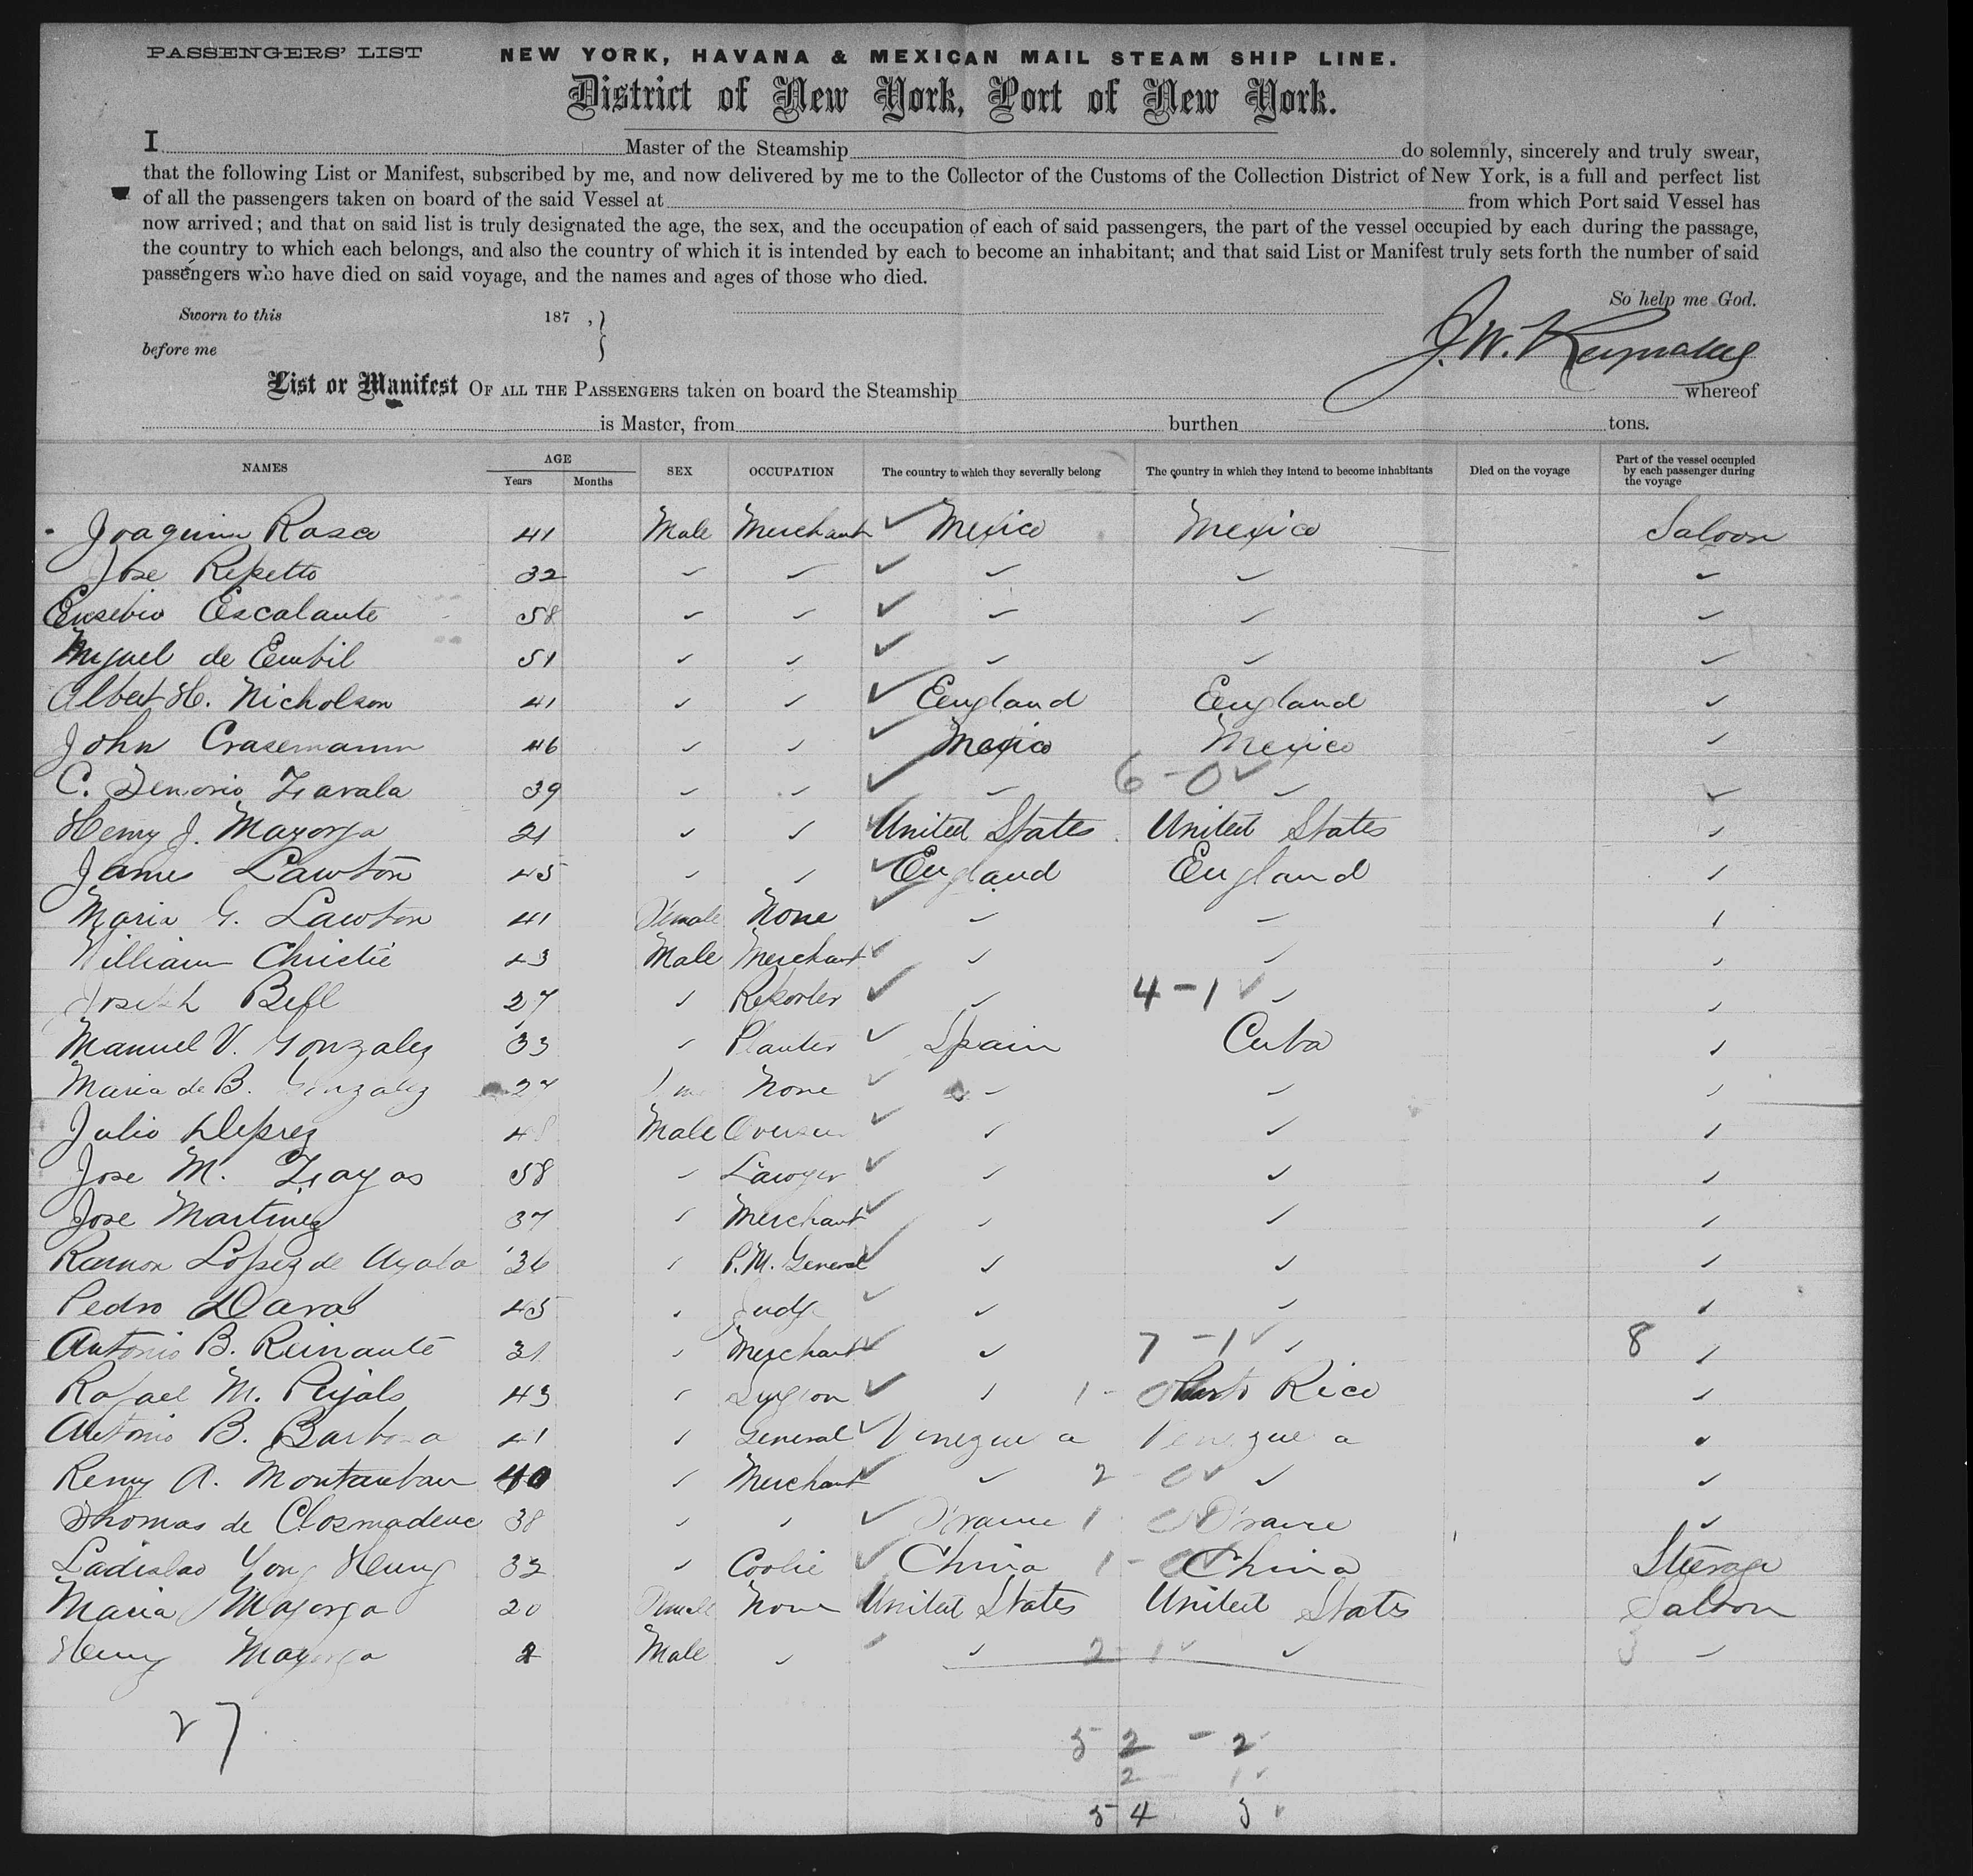 PASSENGERS' LIST NEW YORK, HAVANA & MEXICAN MAIL STEAM SHIP LINE.
District of New York, Port of New York.
I Master of the Steamship do solemnly, sincerely and truly swear,
that the following List or Manifest, subscribed by me, and now delivered by me to the Collector of the Customs of the Collection District of New York, is a full and perfect list
of all the passengers taken on board of the said Vessel at from which Port said Vessel has
now arrived; and that on said list is truly designated the age, the sex, and the occupation of each of said passengers, the part of the vessel occupied by each during the passage,
the country to which each belongs, and also the country of which it is intended by each to become an inhabitant; and that said List or Manifest truly sets forth the number of said
passengers who have died on said voyage, and the names and ages of those who died.
So help me God.
Sworn to this 187 ,}
before me J. W.
List or Manifest OF ALL THE PASSENGERS taken on board the Steamship whereof
is Master, from burthen tons.
NAMES AGE Years Months SEX OCCUPATION The country to which they severally belong The country in which they intend to become inhabitants Died on the voyage Part of the vessel occupied by each passenger during the voyage
Joaquin Rosca 41 Male Merchant ✓ Mexico Mexico Saloon
Jose Repetto 32 ✓
Eusebio Escalante 58 ✓
Miguel de Embil 51 ✓
Albert H. Nicholson 41 ✓ England England
John Crasemann 46 ✓ Mexico Mexico
C. Zavala 39 ✓ 6 - 0 ✓
Henry J. Mayorga 21 United States United States
James Lawton 45 ✓ England England
Maria G. Lawton 41 Female None ✓
William Christie 43 Male Merchant ✓
Joseph Bell 27 Reporter ✓ 4 - 1 ✓
Manuel V. Gonzalez 33 Planter ✓ Spain Cuba
Maria de B. Gonzalez 27 None ✓
Julio Deprez 48 Male Overseer ✓
Jose M. Zayas 58 Lawyer ✓
Jose Martinez 37 Merchant ✓
Ramon Lopez de Ayala 36 P.M. General ✓
Pedro Dara 45 Judge ✓
Antonio B. Reinante 31 Merchant ✓ 7 - 1 ✓ 8
Rafael M. Pujals 43 Surgeon ✓ 1 - 0 Porto Rico
Antonio B. Barbosa 41 General ✓ Venezuela Venezuela
Remy A. Montauban 40 Merchant ✓ 2 - 0 ✓
Thomas de Closmadeuc 38 ✓ France 1 - 0 France
Ladislao Yong Heung 32 Coolie ✓ China 1 - 0 China Steerage
Maria Mayorga 20 Female None United States United States Saloon
Henry Mayorga 2 Male ✓ 2 - 1 ✓ 3
27
52 - 2
2 1 ✓
54 3